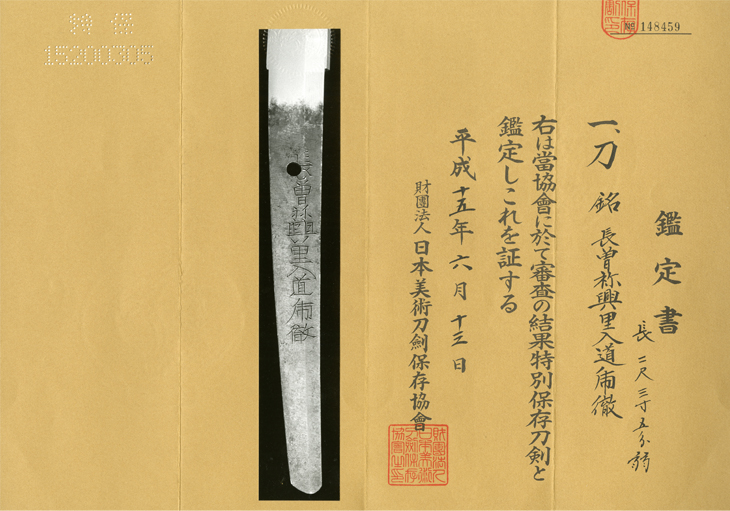 特保
15200305
№ 148459
鑑定書
一、刀 銘 長曽祢興里入道乕徹
長 二尺三寸五分弱
右は當協會に於て審査の結果特別保存刀剣と
鑑定しこれを証する
平成十五年六月十三日
財團法人 日本美術刀劍保存協會
長曽祢興里入道乕徹